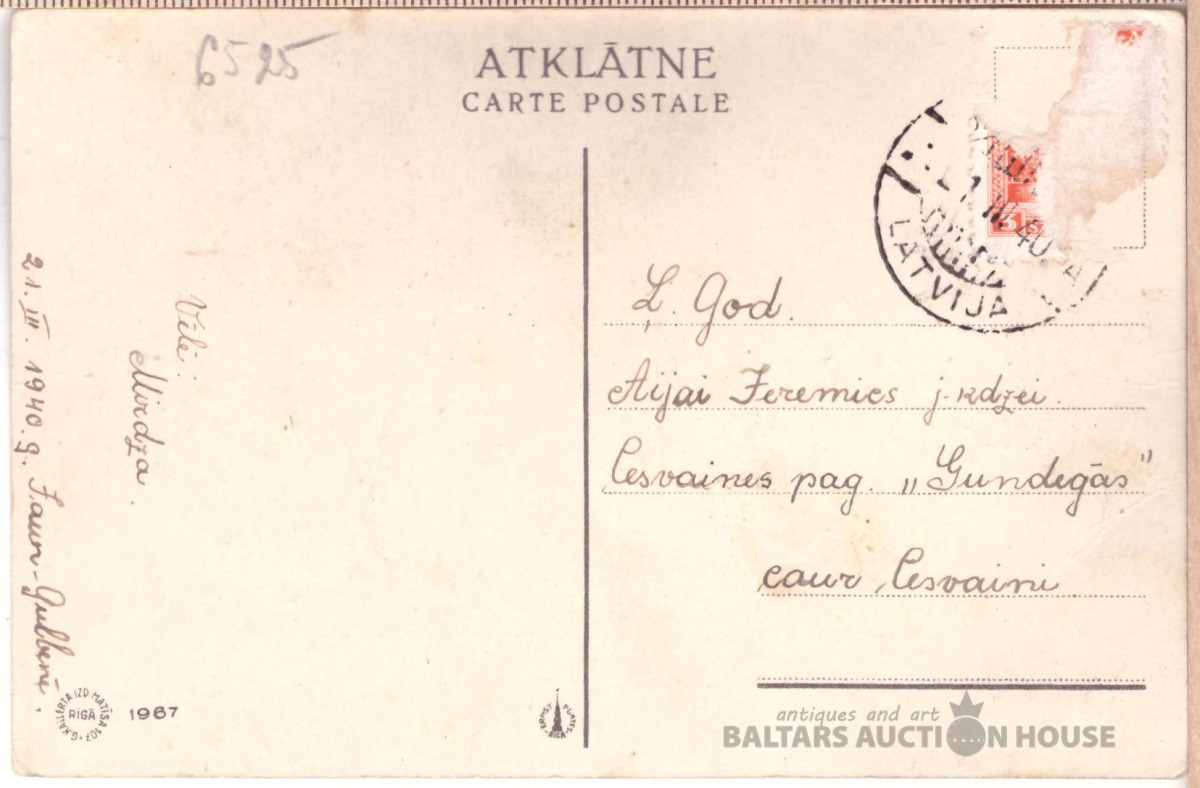 6525
ATKLĀTNE
CARTE POSTALE
LATVIJA
Vēlē:
Mirdza.
21. III. 1940. g. Jaun-Gulbenē.
Ļ. God.
Aijai Jeremics j-kdzei.
Cesvaines pag. „Gundegās"
caur Cesvaini
G.KAILERTA IZD. MATĪSA 107
RĪGĀ
1967
ERNST PLATES
RĪGĀ
antiques and art
BALTARS AUCTION HOUSE